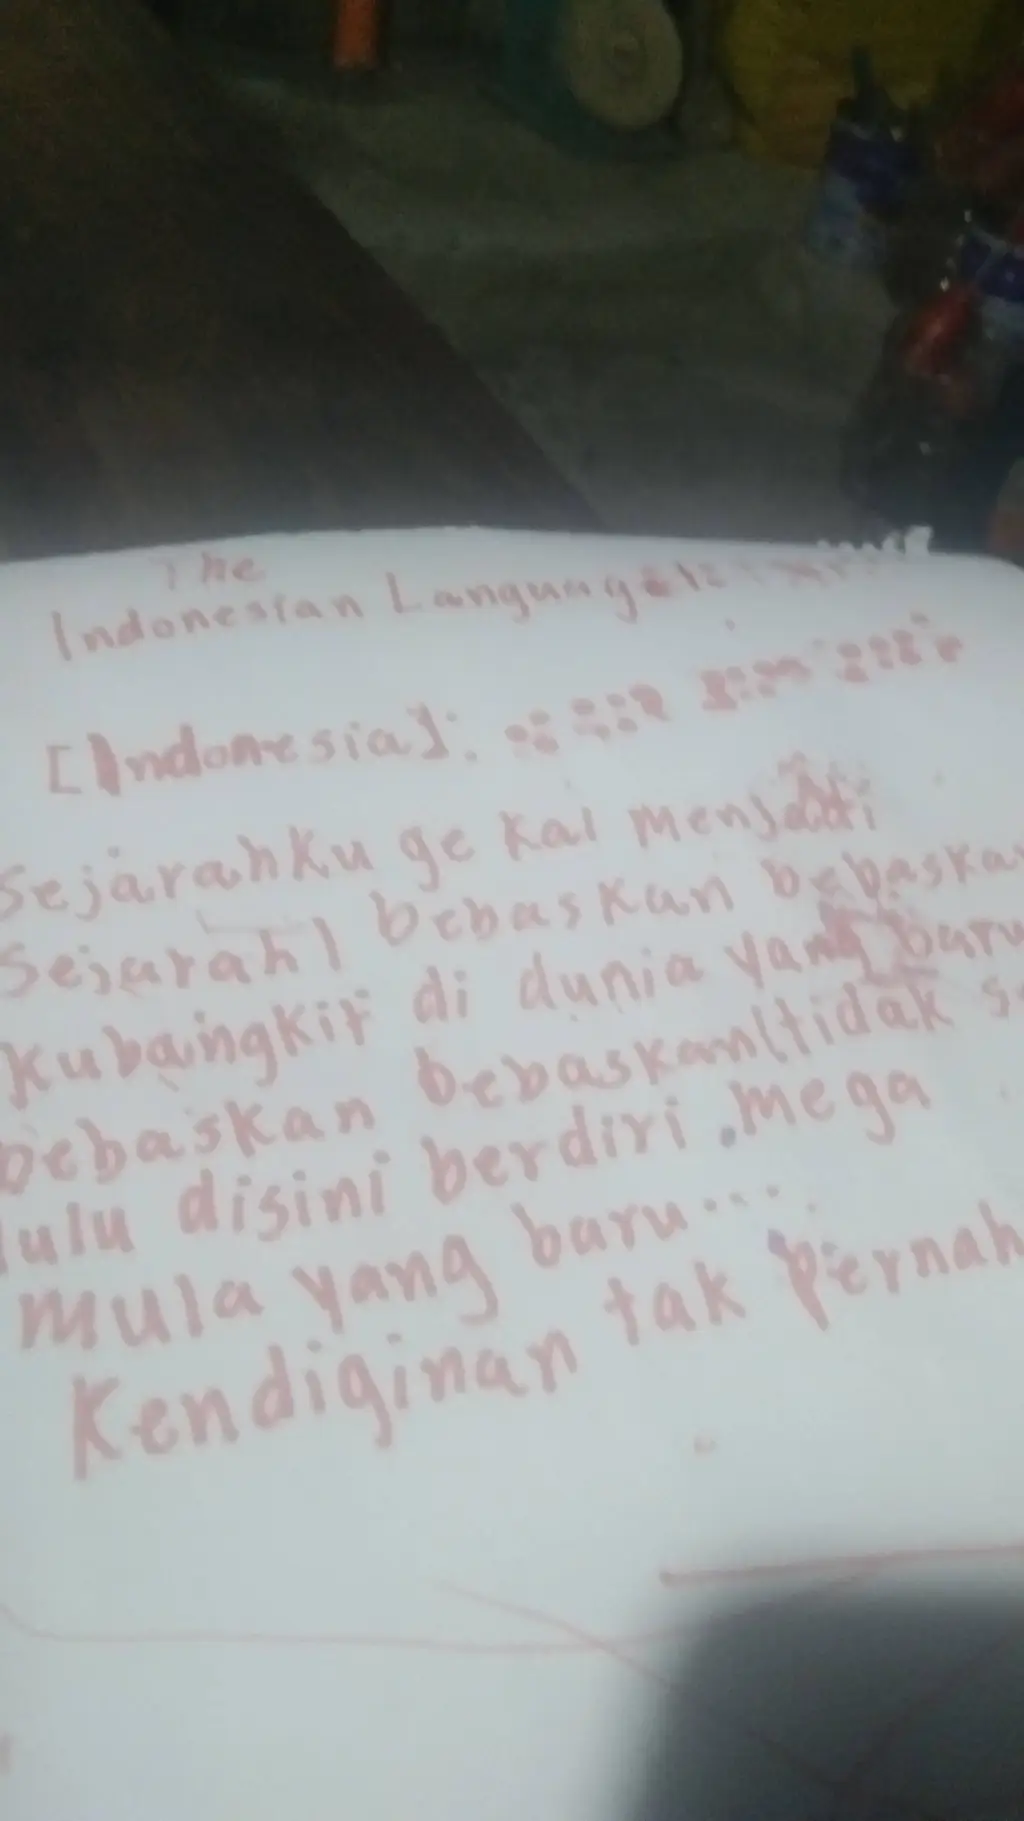 The
Indonesian Languag
[Indonesia]:
Sejarahku ge kal menjadi
Sejarah) bebaskan bebaska
Kubangkit di dunia yang baru
bebaskan bebaskan(tidak s
lulu disini berdiri. mega
mula yang baru....
Kendiginan tak pernah